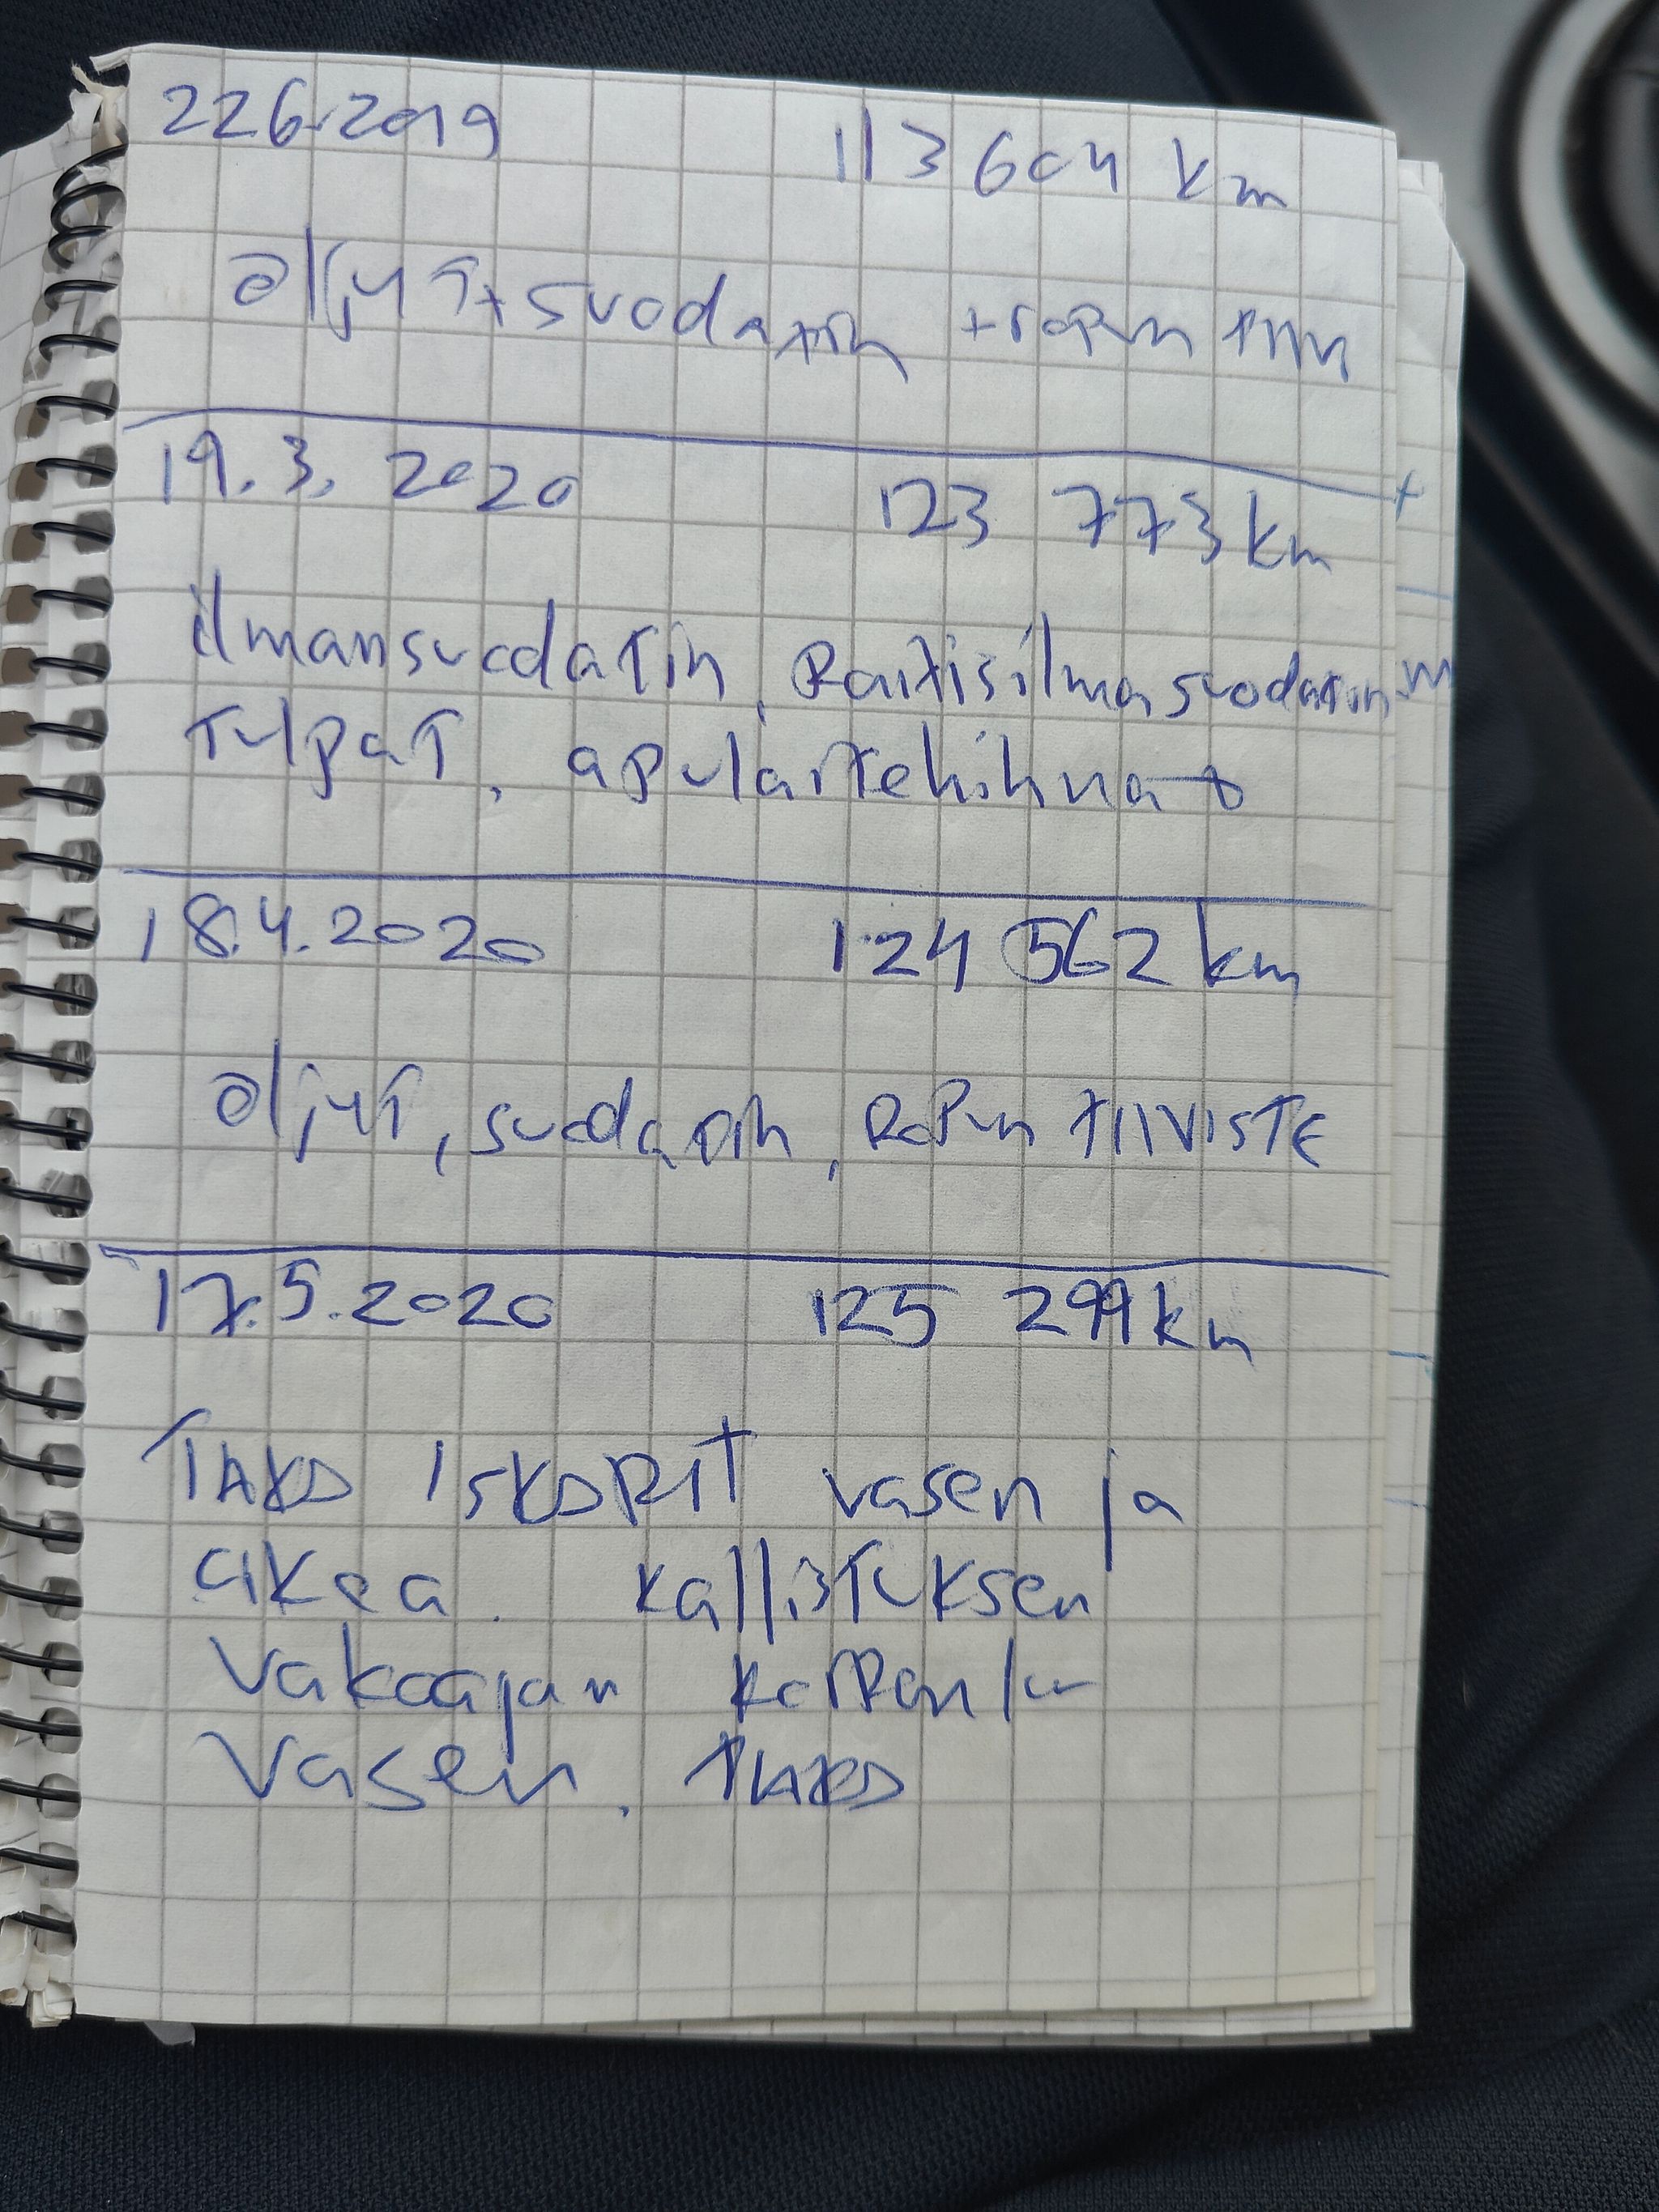 22.6.2019 113 604 km
öljyt + suodatin + ropun tiiv
19.3. 2020 123 773 km
ilmansuodatin, Raitisilmasuodatin
Tulpat, apulaitehihna
18.4.2020 124 562 km
öljyt, suodatin, Ropun tiiviste
17.5.2020 125 299 km
TAKO ISKARIT vasen ja
oikea. kallistuksen
vakaajan koiranluu
vasen. TAKO